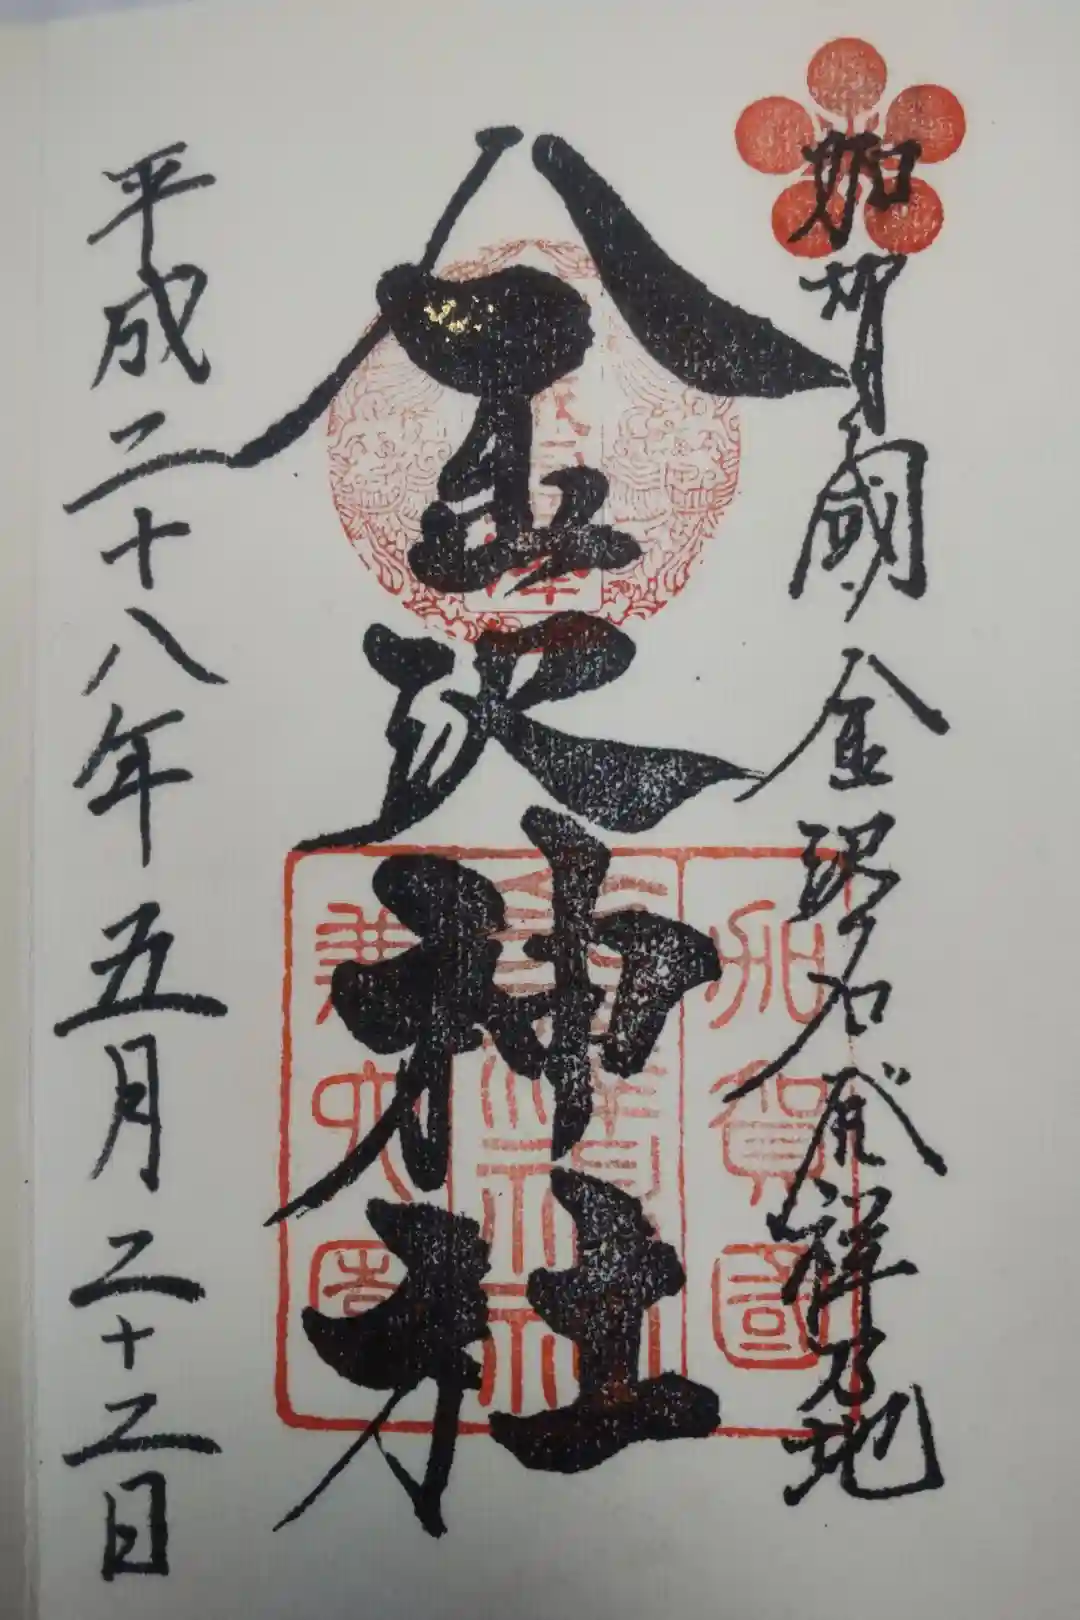 加賀國金沢名発祥乃地
金沢神社
平成二十八年五月二十二日
加賀國
兼六園